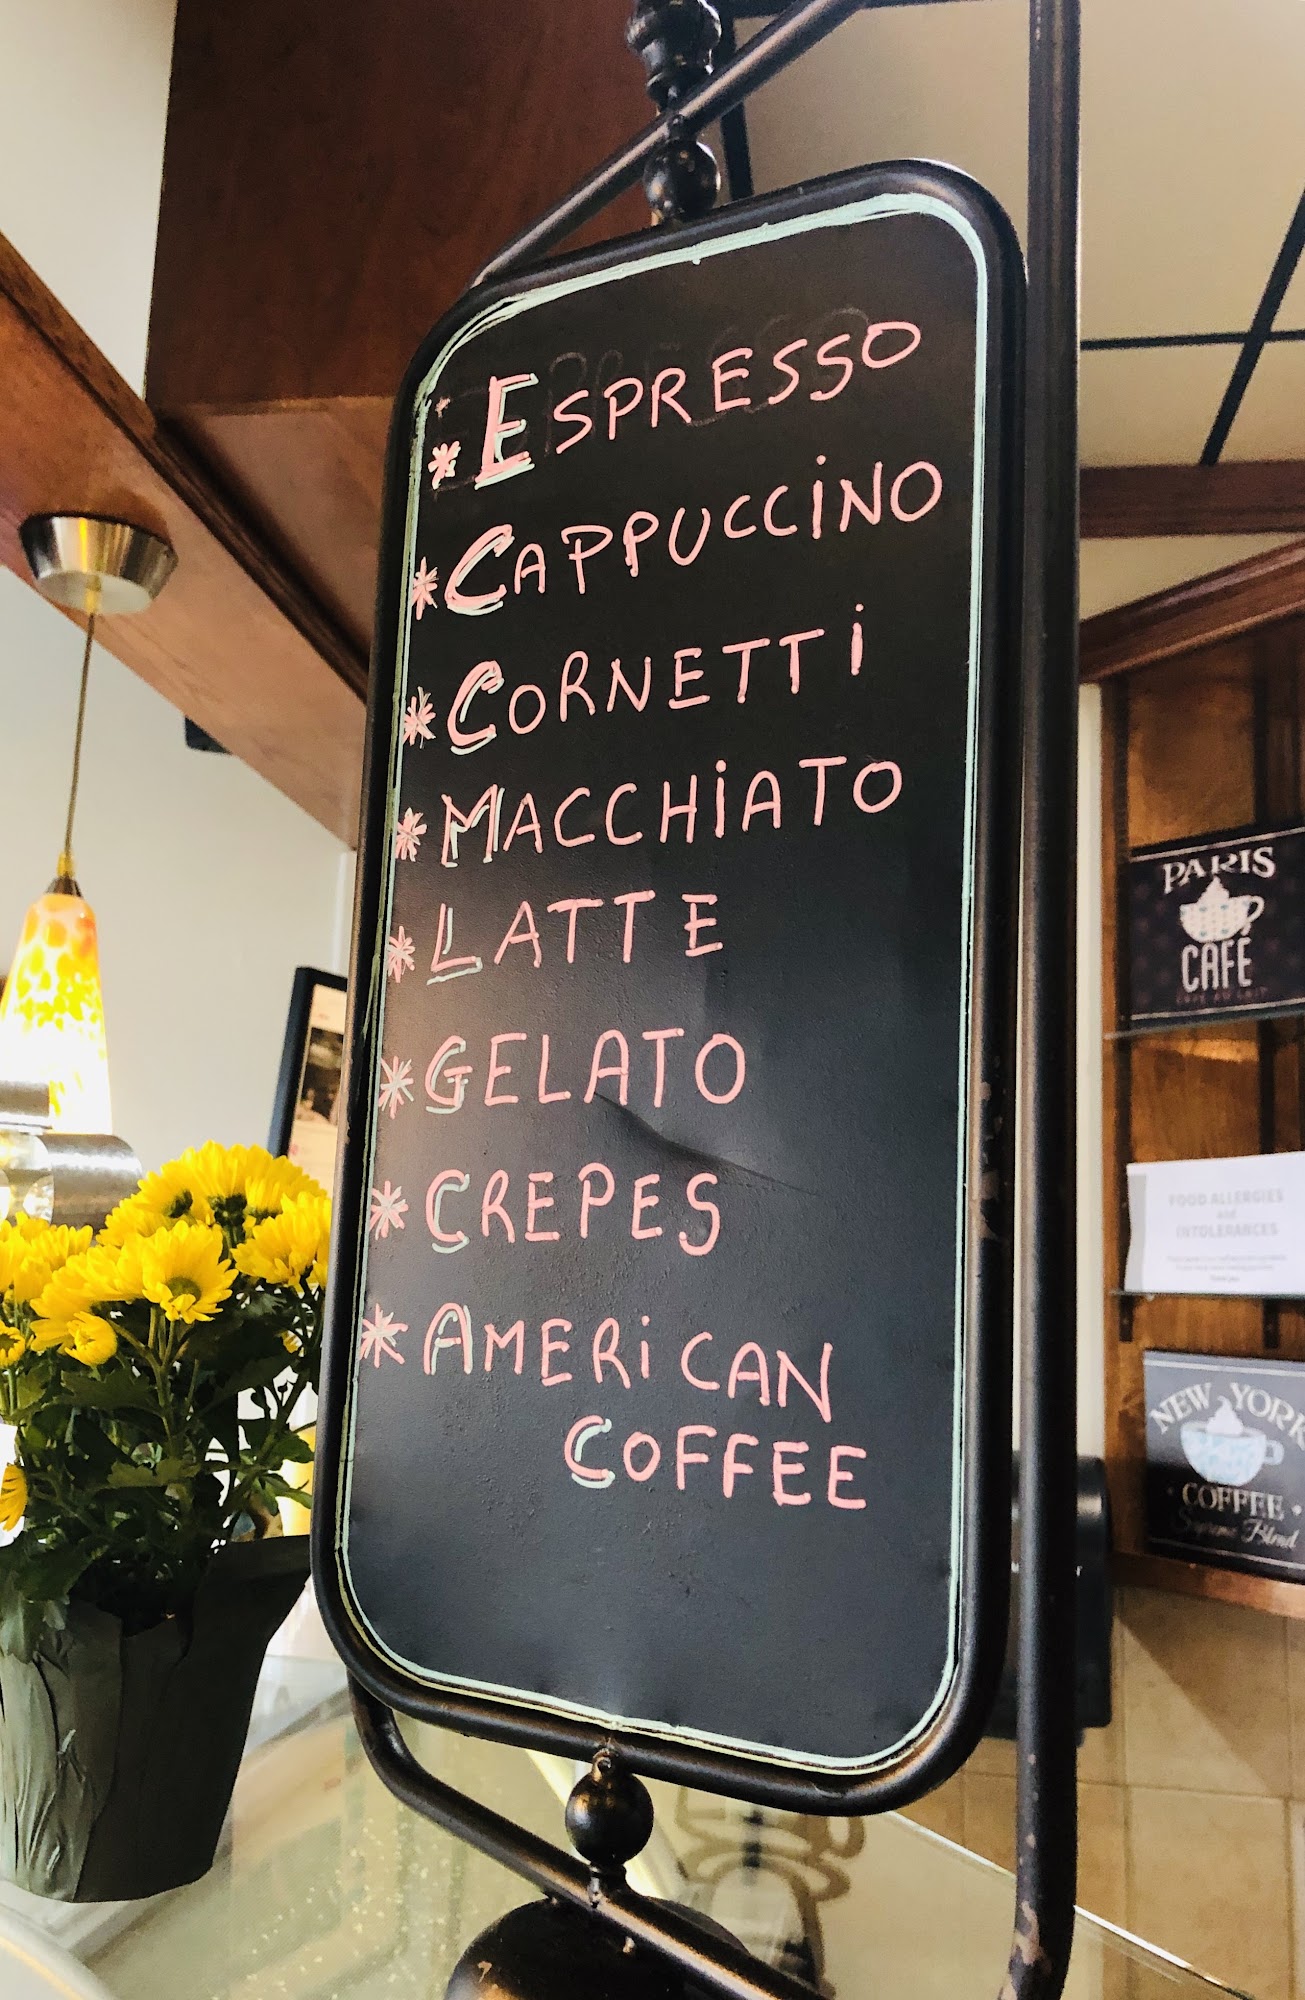 * ESPRESSO
* CAPPUCCiNO
* CORNETTi
* MACCHiATO
* LATTE
* GELATO
* CREPES
* AMERiCAN
COFFEE
PARIS
CAFÉ
CAFE AU LAIT
FOOD ALLERGIES
and
INTOLERANCES
NEW YORK
COFFEE
Supreme Blend